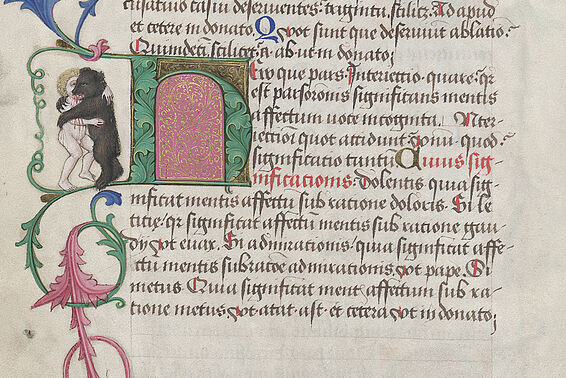 cusatiuu casuu deseruientes: triginta, scilitz. Ad apud
et cetere in donato. Quot sunt que deseruiut ablatio.
Quindeci, scilitz, a, ab. ut in donato.
Heu que pars. Interiectio. quare. qr
est pars oronis significans mentis
affectum uoce incognita. Inter-
iectioni quot accidunt. Vnu. quod.
significatio tantu Cuius sig-
nificationis. Dolentis quia sig-
nificat mentis affectu sub ratione doloris. Si le
titie. qr significat affectu mentis sub ratione gau
dij vt euax. Si admirationis. quia significat affe-
ctu mentis sub ratoe admirationis, vt pape. Si
metus Quia significat ment affectum sub ra-
tione metus vt atat. ast. et cetera vt in donato.